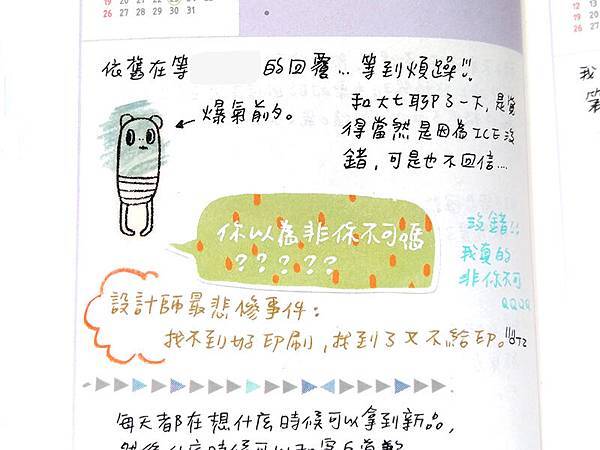 19 20 21 22 23 24 25
26 27 28 29 30 31
12 13
19 20
26 27
依舊在等 的回覆... 等到煩躁!!
爆氣前的。
和大七聊了一下，是覺
得當然是因為ICE沒
錯，可是也不回信...
你以為非你不可嗎
?????
沒錯!!
我真的
非你不可
QQQQ
設計師最悲慘事件：
找不到好印刷，找到了又不給印。!!!
每天都在想什麼時候可以拿到新品，
然後什麼時候可以和
我
第